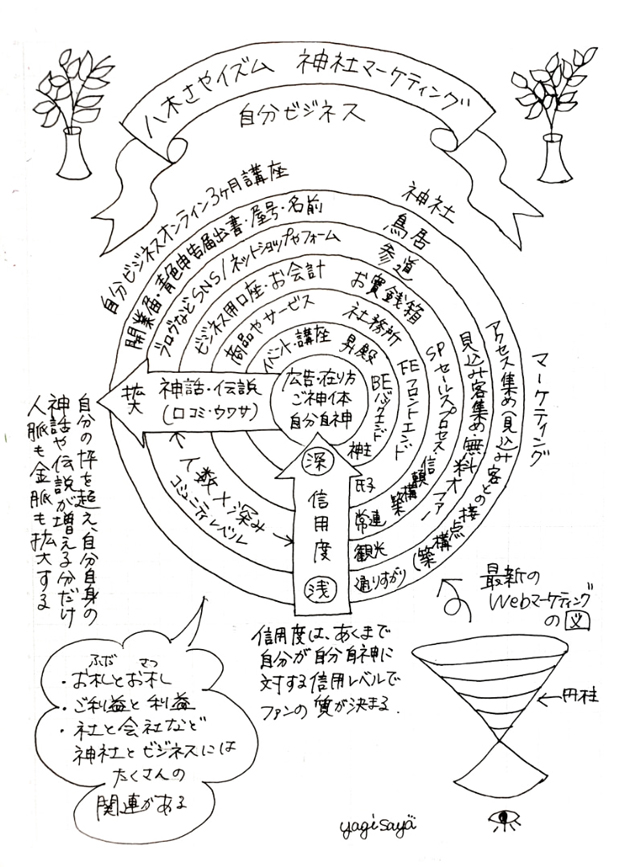 八木さやイズム 神社マーケティング
自分ビジネス
自分ビジネスオンライン3ヶ月講座
神社
開業届・青色申告届出書・屋号・名前
鳥居
ブログなどSNS/ネットショップやフォーム
参道
ビジネス用口座・お会計
お賽銭箱
商品やサービス
社務所
イベント・講座
昇殿
広告・在り方
ご神体
自分自神
マーケティング
アクセス集め(見込み客との接点構築
見込み客集め無料オファー
SPセールスプロセス 信頼構築
FEフロントエンド
BEバックエンド
拡大
神話・伝説
(口コミ・ウワサ)
人数×深み
コミュニティレベル
深
信用度
浅
神主
氏子
常連
観光
通りすがり
自分の枠を超え、自分自身の
神話や伝説が増える分だけ
人脈も金脈も拡大する
信用度は、あくまで
自分が自分自神に
対する信用レベルで
ファンの質が決まる.
最新の
Webマーケティング
の図
円柱
ふだ さつ
・お札とお札
・ご利益と利益
・社と会社など
神社とビジネスには
たくさんの
関連がある
yagisaya